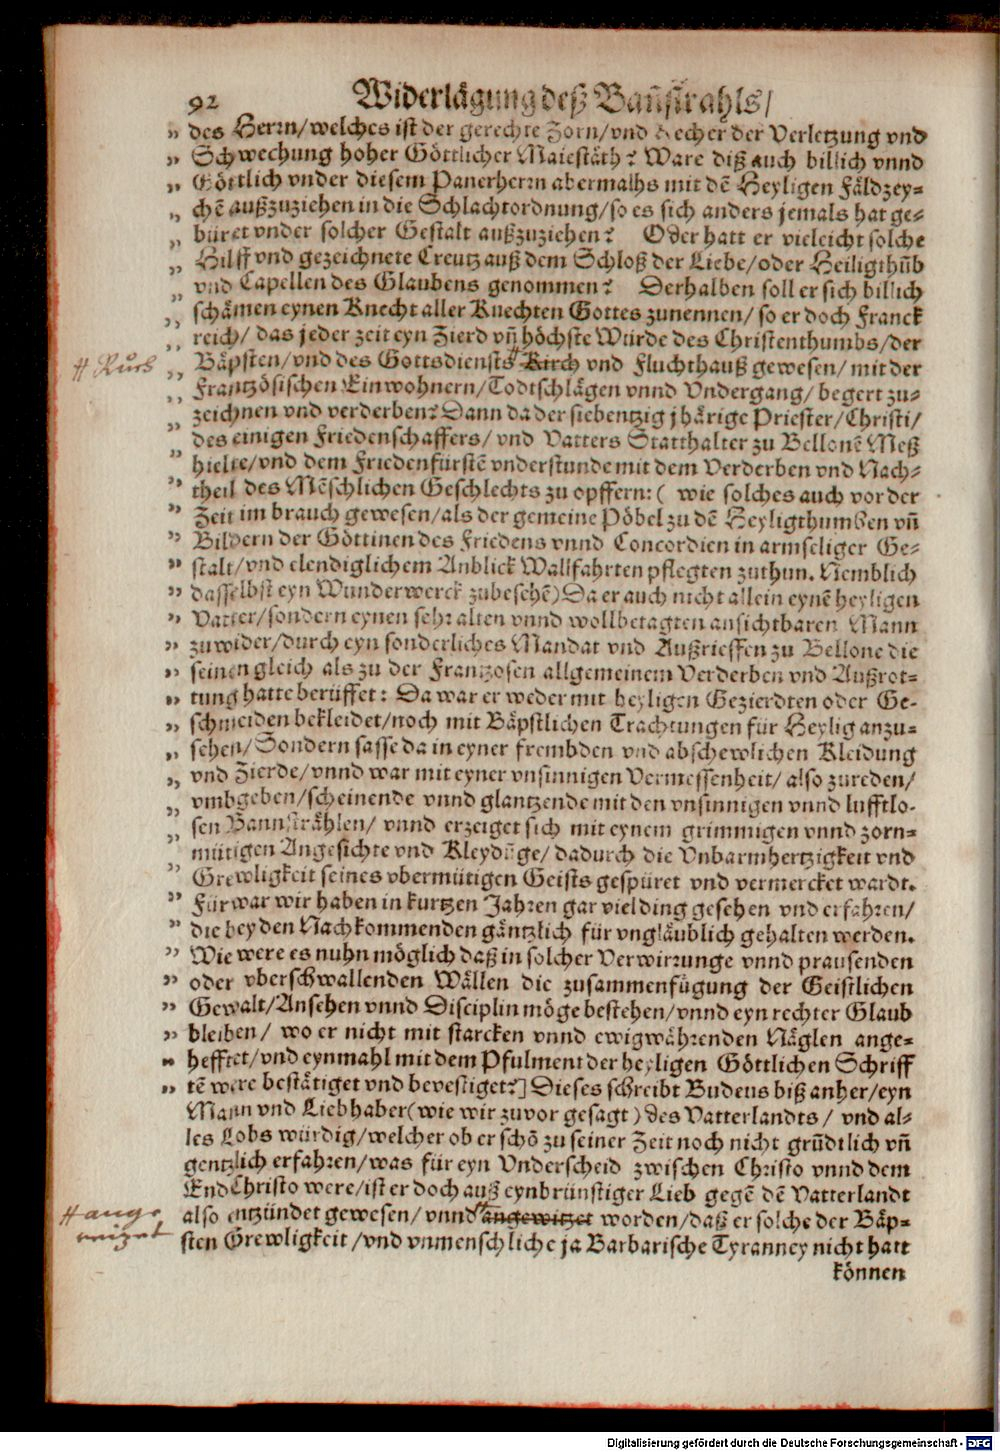 92 Widerlägung deß Bañstrahls/
„ des Herrn/welches ist der gerechte Zorn/vnd Recher der Verletzung vnd
„ Schwechung hoher Göttlicher Maiestäth? Ware diß auch billich vnnd
„ Göttlich vnder diesem Panerherrn abermalhs mit dē Heyligen Fäldzey⸗
„ chē außzuziehen in die Schlachtordnung/so es sich anders jemals hat ge⸗
„ büret vnder solcher Gestalt außzuziehen? Oder hatt er vieleicht solche
„ Hilff vnd gezeichnete Creutz auß dem Schloß der Liebe/oder Heiligthūb
„ vnd Capellen des Glaubens genommen? Derhalben soll er sich billich
„ schämen eynen Knecht aller Knechten Gottes zunennen/ so er doch Franck
„ reich/ das jeder zeit eyn Zierd vñ höchste Würde des Christenthumbs/der
# Rurs
„ Bäpsten/vnd des Gottsdiensts # Kirch vnd Fluchthauß gewesen/ mit der
„ Frantzösischen Einwohnern/Todtschlägen vnnd Vndergang/ begert zu⸗
„ zeichnen vnd verderben? Dann da der siebentzig jhärige Priester/Christi/
„ des einigen Friedenschaffers/ vnd Vatters Statthalter zu Bellonē Meß
„ hielte/vnd dem Friedenfürstē vnderstunde mit dem Verderben vnd Nach⸗
„ theil des Mēschlichen Geschlechts zu opffern: ( wie solches auch vor der
„ Zeit im brauch gewesen/als der gemeine Pöbel zu dē Heyligthumben vñ
„ Bildern der Göttinen des Friedens vnnd Concordien in armseliger Ge⸗
„ stalt/vnd elendiglichem Anblick Wallfahrten pflegten zuthun. Nemblich
„ dasselbst eyn Wunderwerck zubesehē) Da er auch nicht allein eynē heyligen
„ Vatter/sondern eynen sehr alten vnnd wollbetagten ansichtbaren Mann
„ zuwider/durch eyn sonderliches Mandat vnd Außrieffen zu Bellone die
„ seinen gleich als zu der Frantzosen allgemeinem Verderben vnd Außrot⸗
„ tung hatte berüffet: Da war er weder mit heyligen Gezierdten oder Ge-
„ schmeiden bekleidet/noch mit Bäpstlichen Trachtungen für Heylig anzu⸗
„ sehen/ Sondern sasse da in eyner frembden vnd abschewlichen Kleidung
„ vnd Zierde/vnnd war mit eyner vnsinnigen Vermessenheit/ also zureden/
„ vmbgeben/scheinende vnnd glantzende mit den vnsinnigen vnnd lufftlo-
„ sen Bannstrählen/ vnnd erzeiget sich mit eynem grimmigen vnnd zorn⸗
„ mütigen Angesichte vnd Kleydūge/ dadurch die Vnbarmhertzigkeit vnd
„ Grewligkeit seines vbermütigen Geists gespüret vnd vermercket wardt.
„ Fürwar wir haben in kurtzen Jahren gar viel ding gesehen vnd erfahren/
„ die bey den Nachkommenden gäntzlich für vngläublich gehalten werden.
„ Wie were es nuhn möglich daß in solcher Verwirrunge vnnd prausenden
„ oder vberschwallenden Wällen die zusammenfügung der Geistlichen
„ Gewalt/Ansehen vnnd Disciplin möge bestehen/vnnd eyn rechter Glaub
„ bleiben/ wo er nicht mit starcken vnnd ewigwährenden Näglen ange⸗
„ hefftet/vnd eynmahl mit dem Pfulment der heyligen Göttlichen Schriff
„ tē were bestätiget vnd bevestiget?] Dieses schreibt Budeus biß anher/eyn
Mann vnd Liebhaber (wie wir zuvor gesagt) des Vatterlandts/ vnd al⸗
les Lobs würdig/welcher ob er schō zu seiner Zeit noch nicht grūdtlich vñ
gentzlich erfahren/was für eyn Vnderscheid zwischen Christo vnnd dem
EndChristo were/ist er doch auß eynbrünstiger Lieb gegē dē Vatterlandt
# ange
reizet
also entzündet gewesen/ vnnd # angewitzet worden/daß er solche der Bäp⸗
sten Grewligkeit/vnd vnmenschliche ja Barbarische Tyranney nicht hatt
können
Digitalisierung gefördert durch die Deutsche Forschungsgemeinschaft - DFG